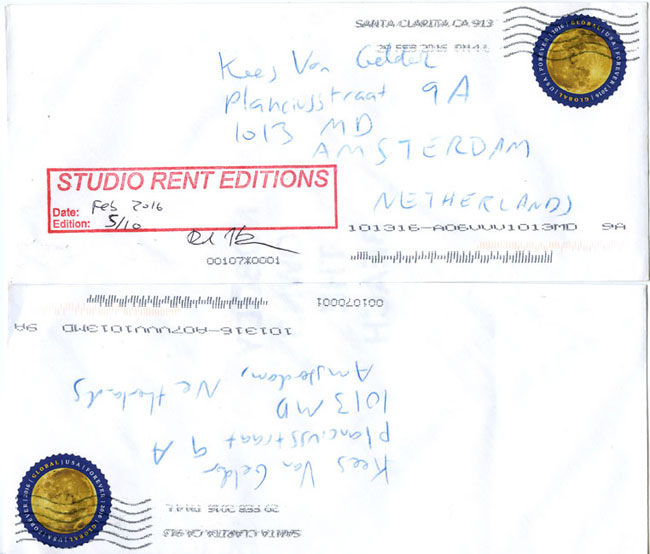 SANTA CLARITA CA 913
FEB 2016 PM 4 L
GLOBAL | USA | FOREVER | 2016 | GLOBAL | USA | FOREVER | 2016
Kees Van Gelder
Planciusstraat 9A
1013 MD
AMSTERDAM
NETHERLANDS
STUDIO RENT EDITIONS
Date: Feb 2016
Edition: 5/10
101316-A06VVV1013MD 9A
00107X0001
001070001
101316-A07UVV1013MD 9A
Kees Van Gelder
Planciusstraat 9 A
1013 MD
Amsterdam, Netherlands
SANTA CLARITA CA 913
FEB 2016 PM 4 L
GLOBAL | USA | FOREVER | 2016 | GLOBAL | USA | FOREVER | 2016